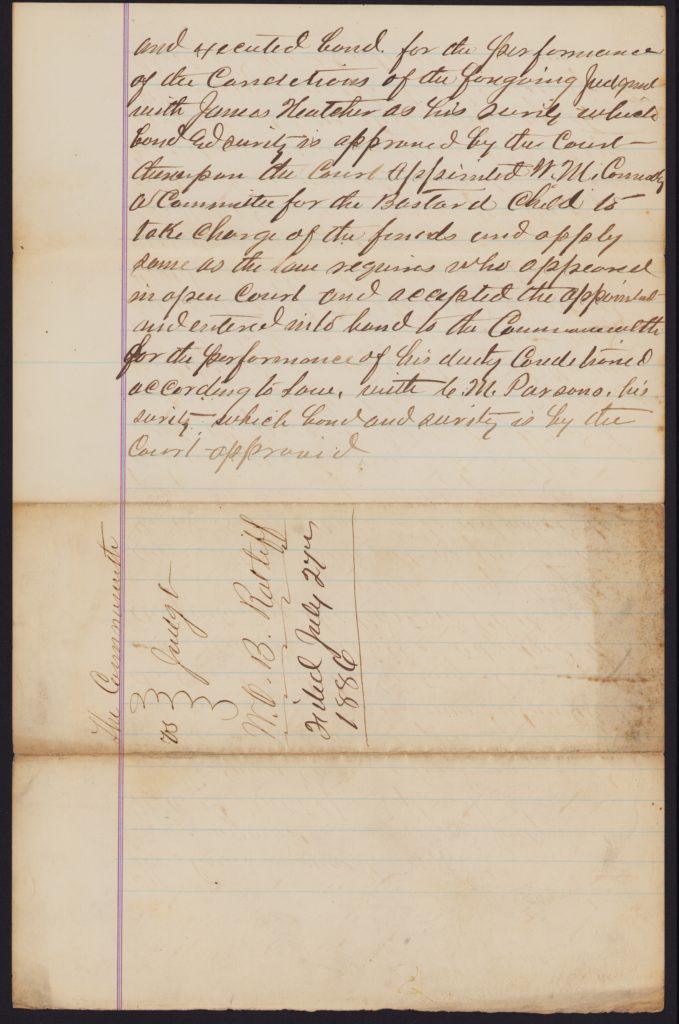 and executed bond for the performance
of the Conditions of the foregoing Judgmnt
with James Hatcher as his surity which
bond and surity is approved by the Court
thereupon the Court appointed W. M. Connolly
a Committee for the Bastard Child to
take charge of the funds and apply
same as the law requires who appeared
in open Court and accepted the appointmt
and entered into bond to the Commonwealth
for the performance of his duty Conditioned
according to law, with C. M. Parsons, his
surity which bond and surity is by the
Court approved
The Commonwealth
vs Judgt
W. B. Ratliff
Filed July 27th
1886